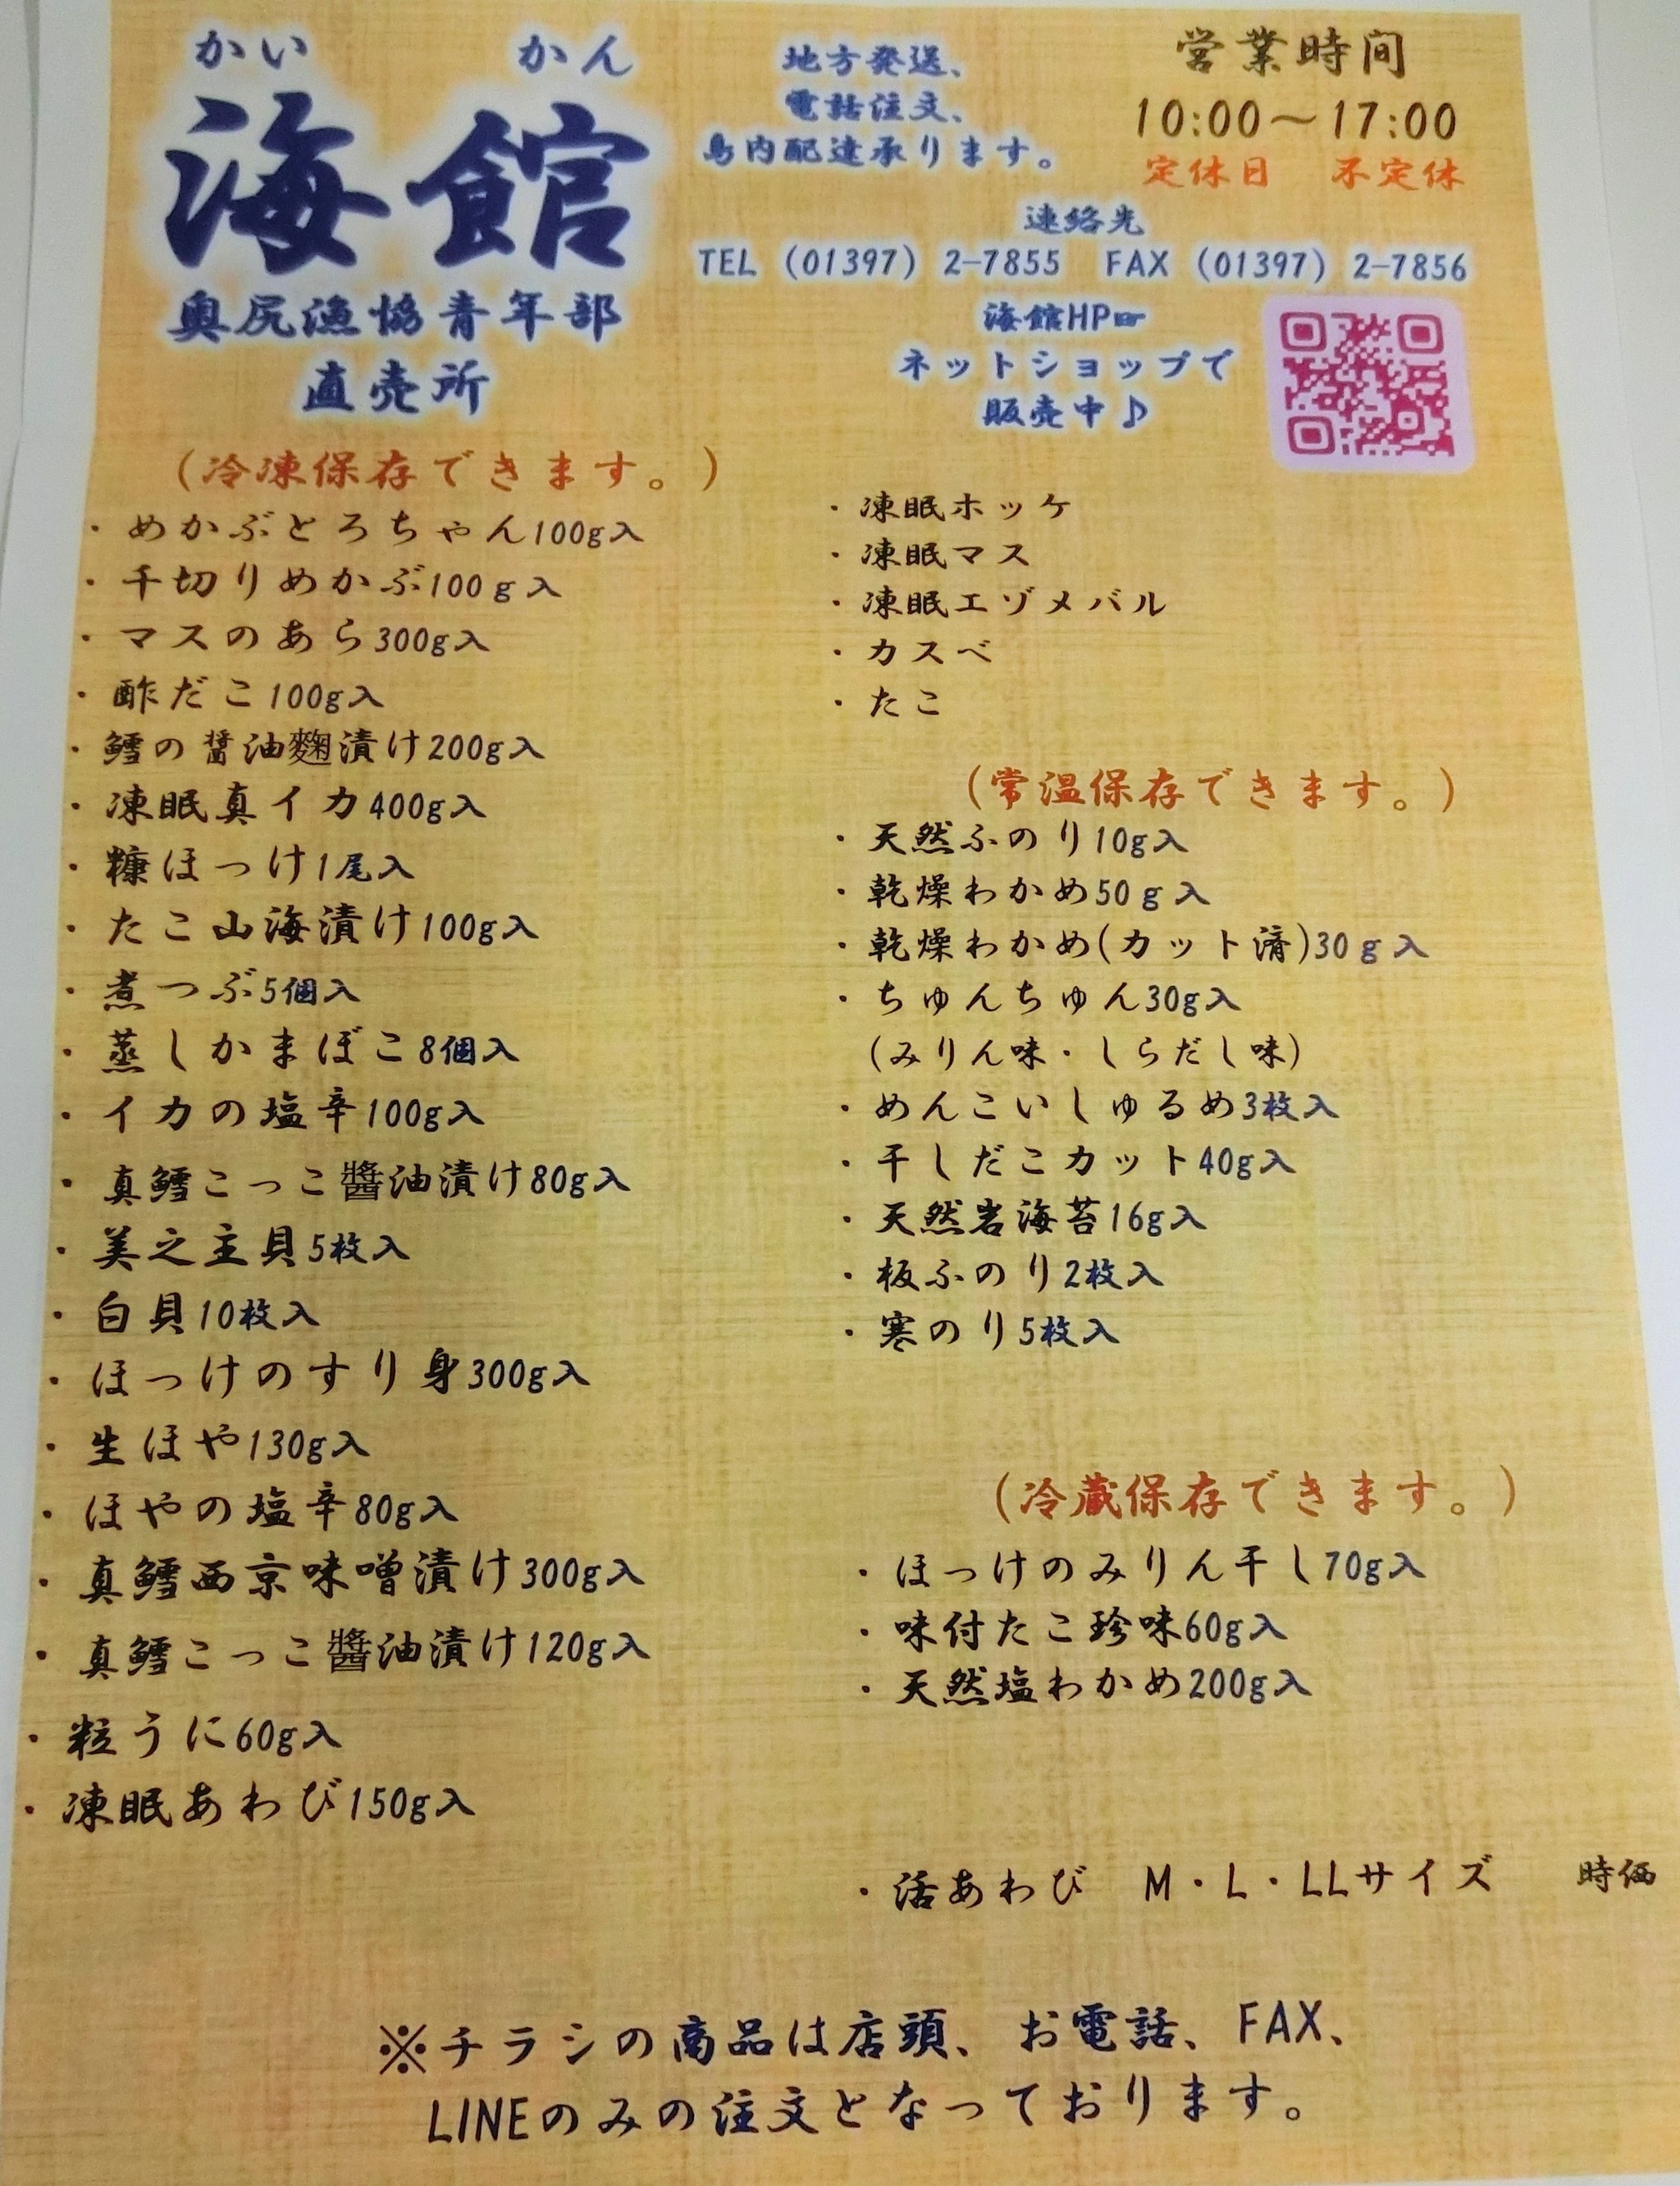 かい かん
海館
奥尻漁協青年部
直売所
地方発送、
電話注文、
島内配達承ります。
営業時間
10:00～17:00
定休日 不定休
連絡先
TEL (01397) 2-7855 FAX (01397) 2-7856
海館HP☞
ネットショップで
販売中♪
(冷凍保存できます。)
・めかぶとろちゃん100g入
・千切りめかぶ100ｇ入
・マスのあら300g入
・酢だこ100g入
・鱈の醤油麴漬け200g入
・凍眠真イカ400g入
・糠ほっけ1尾入
・たこ山海漬け100g入
・煮つぶ5個入
・蒸しかまぼこ8個入
・イカの塩辛100g入
・真鱈こっこ醬油漬け80g入
・美之主貝5枚入
・白貝10枚入
・ほっけのすり身300g入
・生ほや130g入
・ほやの塩辛80g入
・真鱈西京味噌漬け300g入
・真鱈こっこ醬油漬け120g入
・粒うに60g入
・凍眠あわび150g入
・凍眠ホッケ
・凍眠マス
・凍眠エゾメバル
・カスベ
・たこ
(常温保存できます。)
・天然ふのり10g入
・乾燥わかめ50ｇ入
・乾燥わかめ(カット済)30ｇ入
・ちゅんちゅん30g入
(みりん味・しらだし味)
・めんこいしゅるめ3枚入
・干しだこカット40g入
・天然岩海苔16g入
・板ふのり2枚入
・寒のり5枚入
(冷蔵保存できます。)
・ほっけのみりん干し70g入
・味付たこ珍味60g入
・天然塩わかめ200g入
・活あわび M・L・LLサイズ 時価
※チラシの商品は店頭、お電話、FAX、
LINEのみの注文となっております。